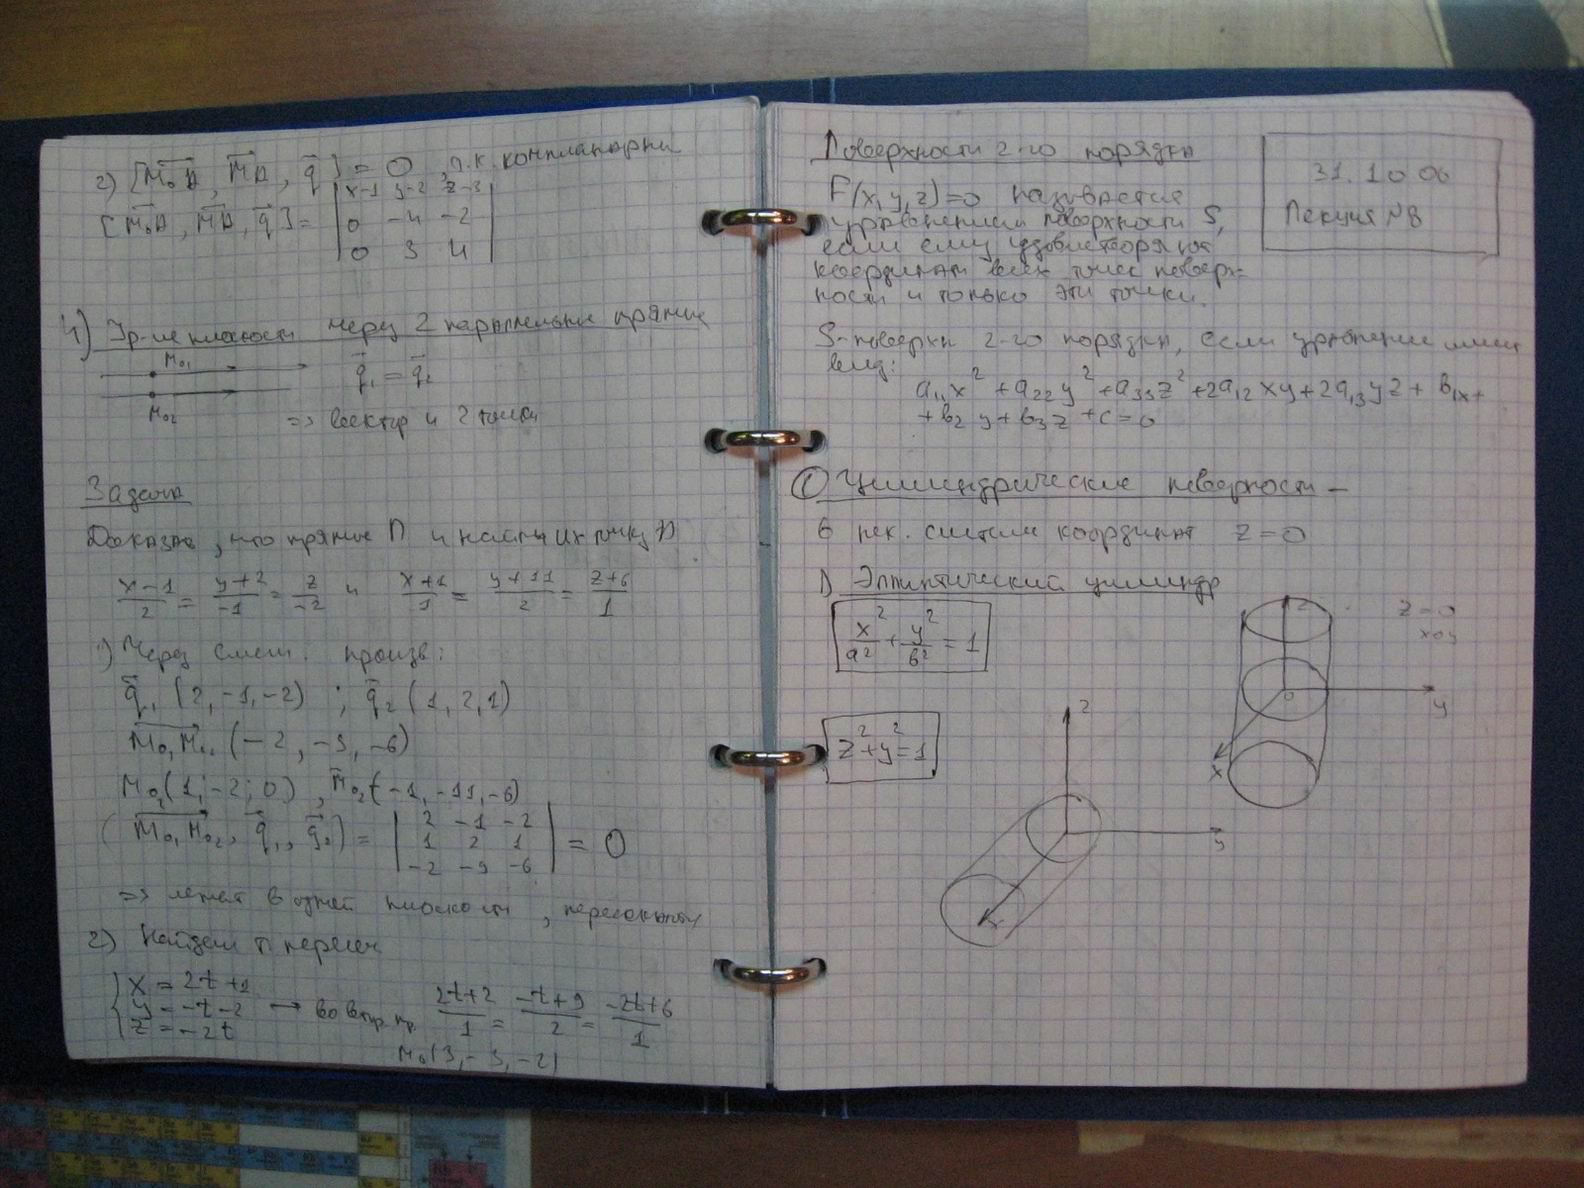 2) [M₀A, MA, q] = 0, т.к. компланарны
[M₀A, MA, q] = | x-1 y-2 z-3 |
| 0 -4 -2 |
| 0 3 4 |
4) Ур-ие плоскости через 2 параллельные прямые
M₀₁
q₁ = q₂
M₀₂
=> вектор и 2 точки
Задача
Доказать, что прямые П и найти их точку П
(x-1)/2 = (y+2)/-1 = z/-2 и (x+1)/1 = (y+11)/2 = (z+6)/1
1) Через смеш. произв:
q₁ (2, -1, -2) ; q₂ (1, 2, 1)
(-2, -9, -6)
(1; -2; 0), M₀₂(-1, -11, -6)
(M₀₁M₀₂, q₁, q₂) = | 2 -1 -2 | = 0
| 1 2 1 |
| -2 -9 -6 |
=> лежат в одной плоскости, пересекаются
2) Найдем т пересеч
{ x = 2t+1
y = -t-2 → во втор. пр. (2t+2)/1 = (-t+9)/2 = (-2t+6)/1
z = -2t
M₀(3, -3, -2)
31.10 06
Лекция №8
Поверхности 2-го порядка
F(x,y,z)=0 называется
уравнением поверхности S,
если ему удовлетворяют
координаты всех точек поверх-
ности и только эти точки.
S-поверхн 2-го порядка, если уравнение имеет
вид:
a₁₁x² + a₂₂y² + a₃₃z² + 2a₁₂xy + 2a₁₃yz + b₁x +
+ b₂y + b₃z + c = 0
① Цилиндрические поверхности –
в нек. системе координат z = 0
1) Эллиптический цилиндр
x²/a² + y²/b² = 1
z
z = 0
xoy
0
y
x
z² + y² = 1
z
y
x